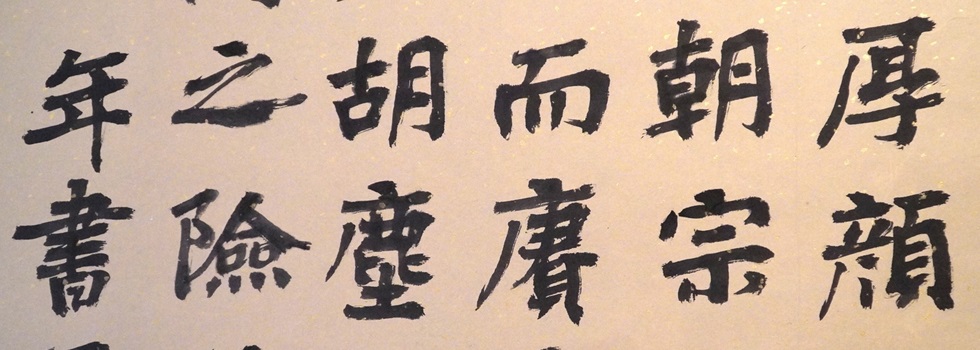 厚顔
朝宗
而賡
胡塵
之險
年書